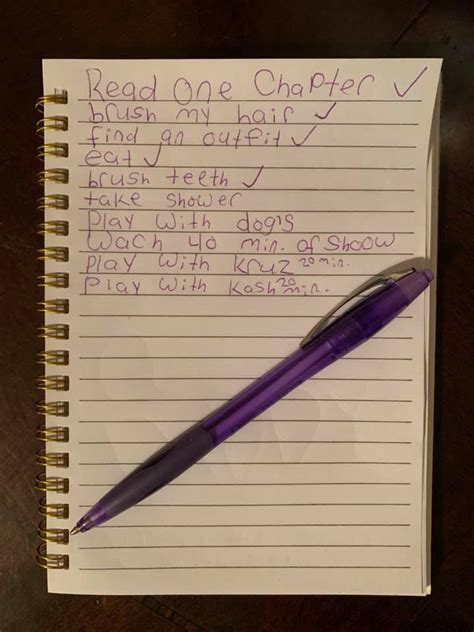 Read One Chapter ✓
brush my hair ✓
find an outfit ✓
eat ✓
brush teeth ✓
take shower
Play with dog's
Wach 40 min. of Shoow
Play with Kruz 20 min.
Play with Kash 20 min.